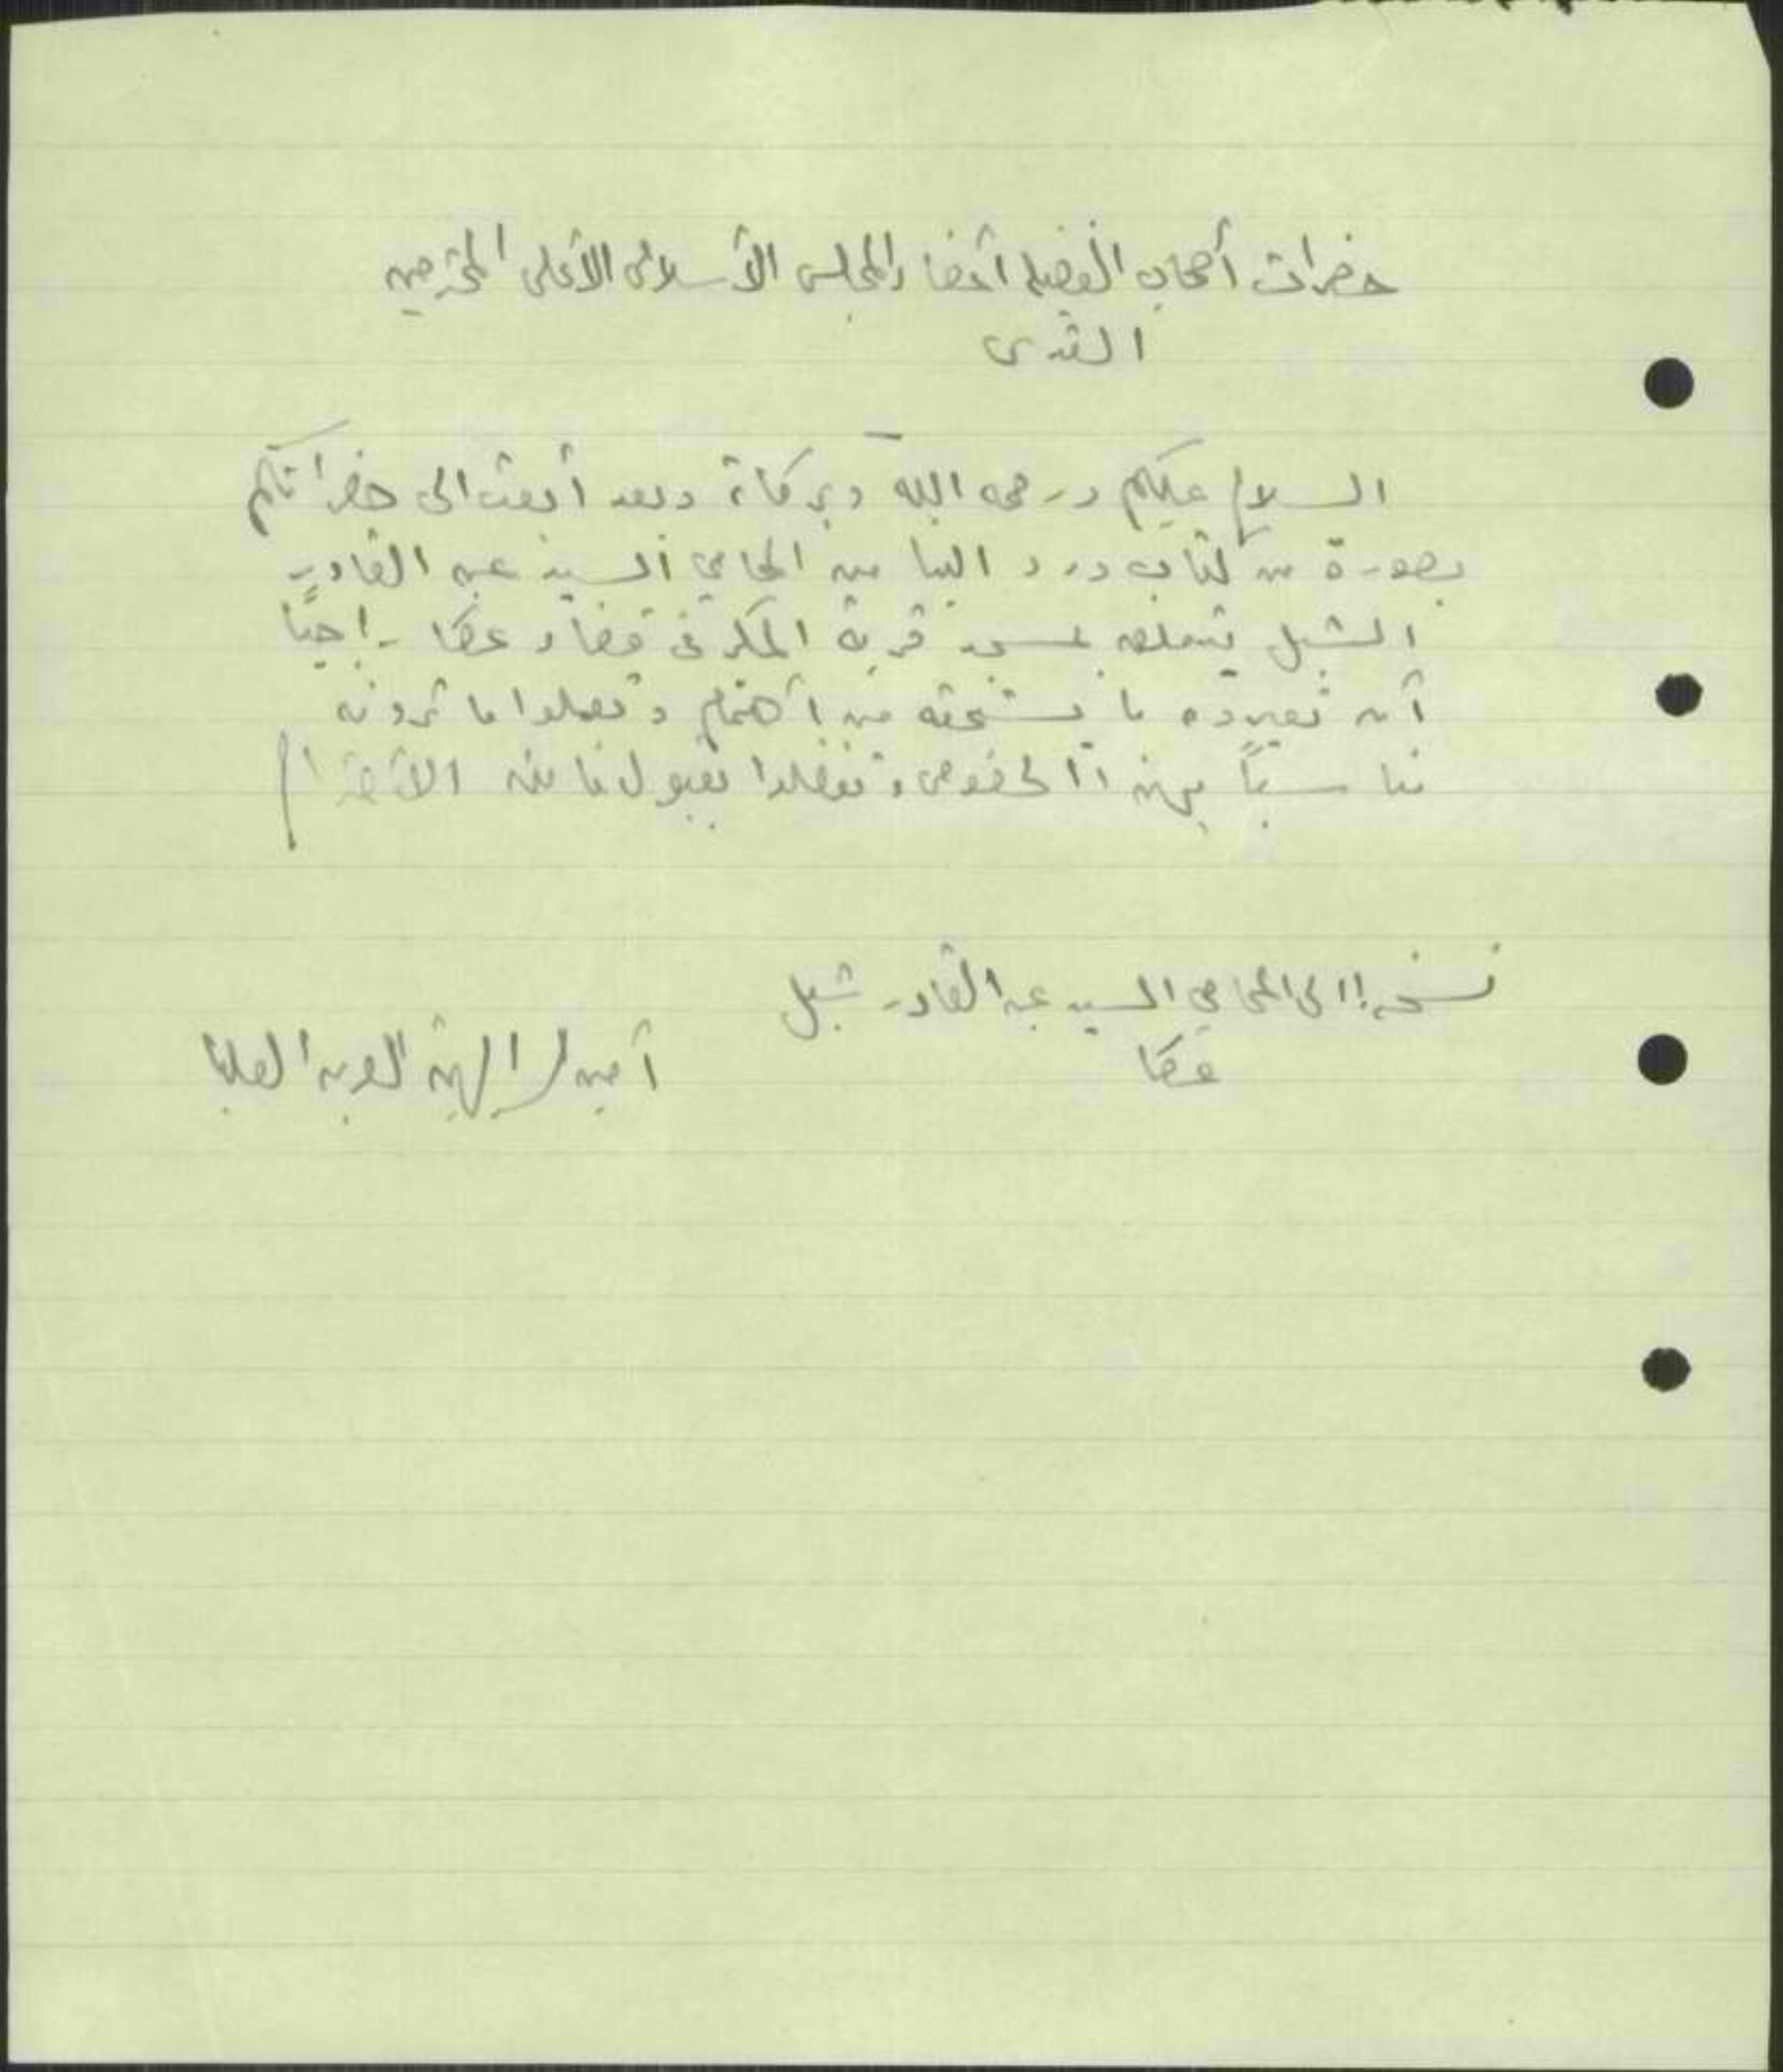 حضرات أصحاب الفضيلة أعضاء المجلس الأسلامى الأعلى المحترمين
القدس
السلام عليكم ورحمة الله وبركاته وبعد أبعث الى حضراتكم
بصورة من كتاب ورد الينا من المحامي السيد عبد القادر
الشبل يتعلق بمسجد قرية المكر في قضاء عكا راجيًا
أن تعيروه ما يستحقه من أهتمام وتعملوا ما ترونه
مناسبًا بهذا الخصوص وتفضلوا بقبول فائق الأحترام
نسخة الى المحامي السيد عبد القادر شبل
عكا
أمين سر الهيئة العربية العليا